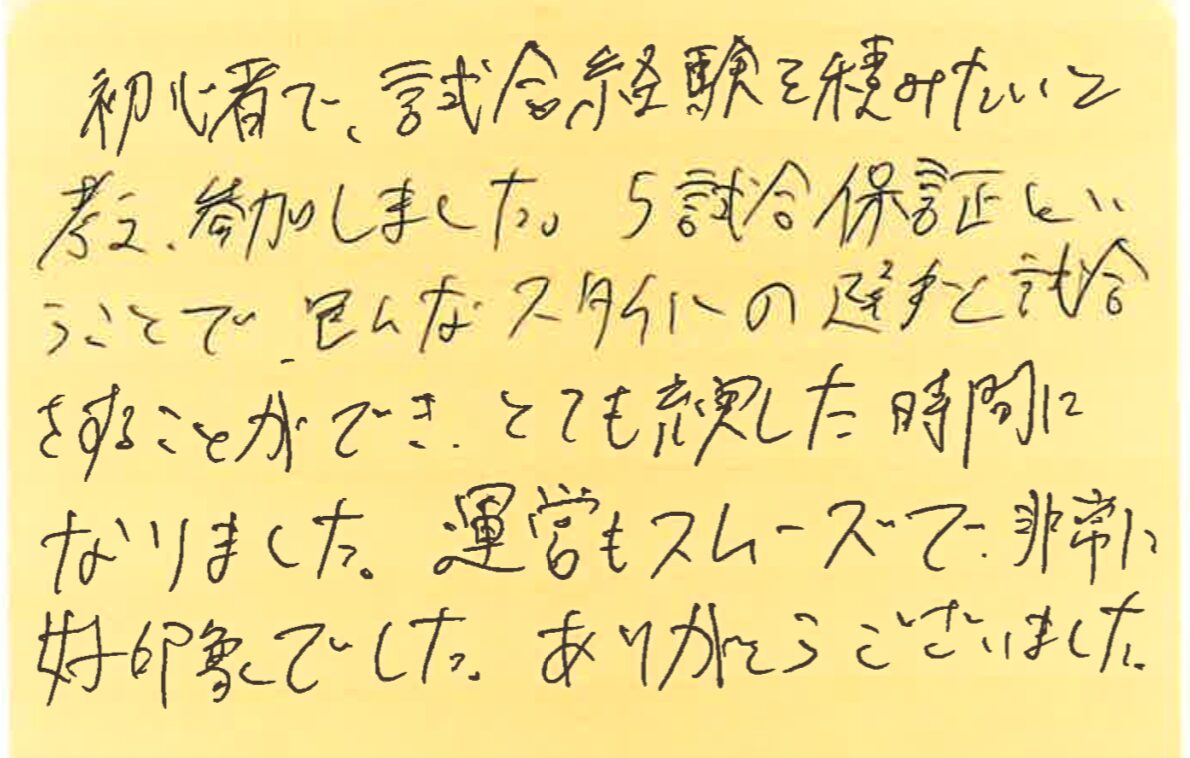 初心者で、試合経験を積みたいと
考え、参加しました。5試合保証とい
うことで、色んなスタイルの選手と試合
をすることができ、とても充実した時間に
なりました。運営もスムーズで、非常に
好印象でした。ありがとうございました。